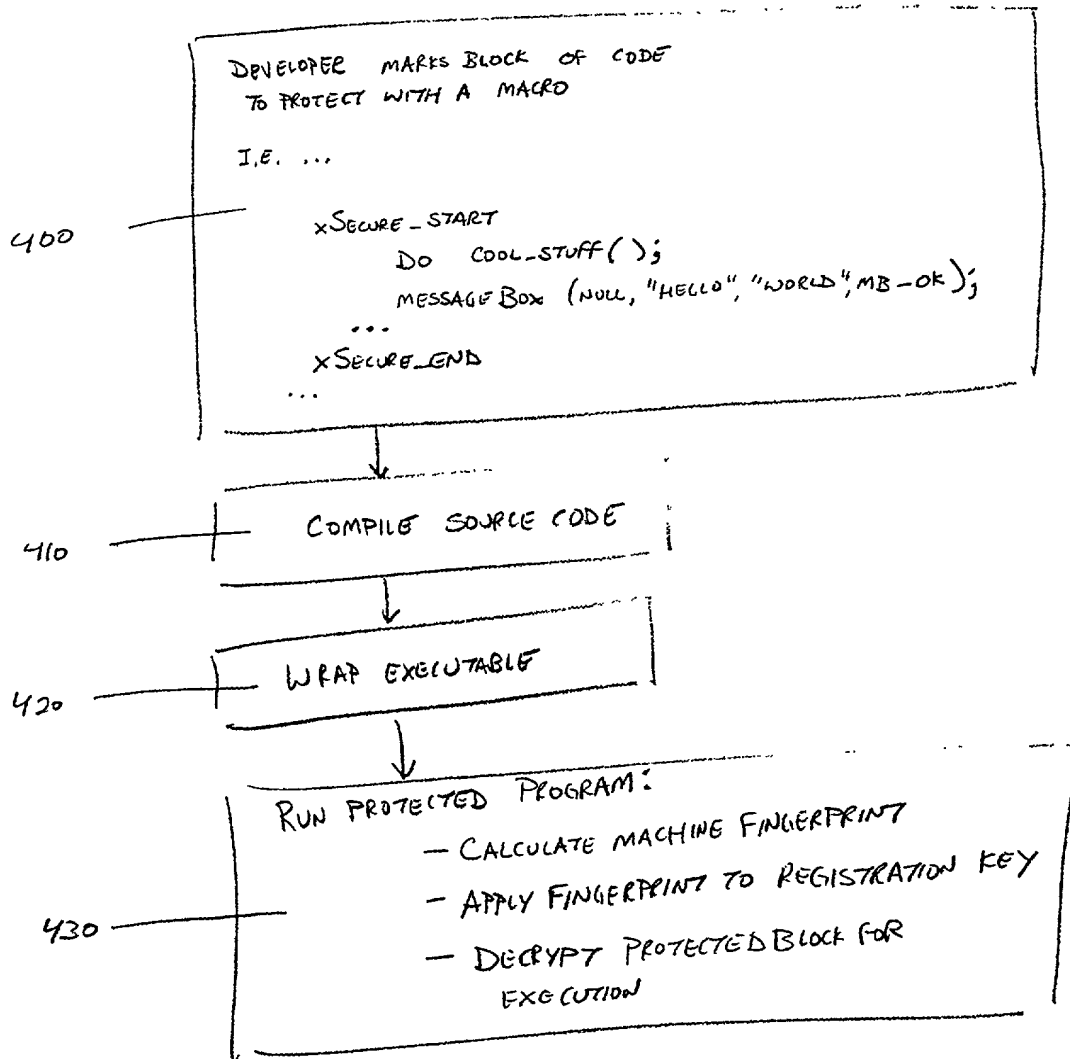 DEVELOPER MARKS BLOCK OF CODE
TO PROTECT WITH A MACRO
I.E. ...
400
xSECURE_START
DO COOL_STUFF();
MESSAGEBOX (NULL, "HELLO", "WORLD", MB_OK);
...
xSECURE_END
...
410
COMPILE SOURCE CODE
420
WRAP EXECUTABLE
RUN PROTECTED PROGRAM:
- CALCULATE MACHINE FINGERPRINT
- APPLY FINGERPRINT TO REGISTRATION KEY
430
- DECRYPT PROTECTED BLOCK FOR
EXECUTION